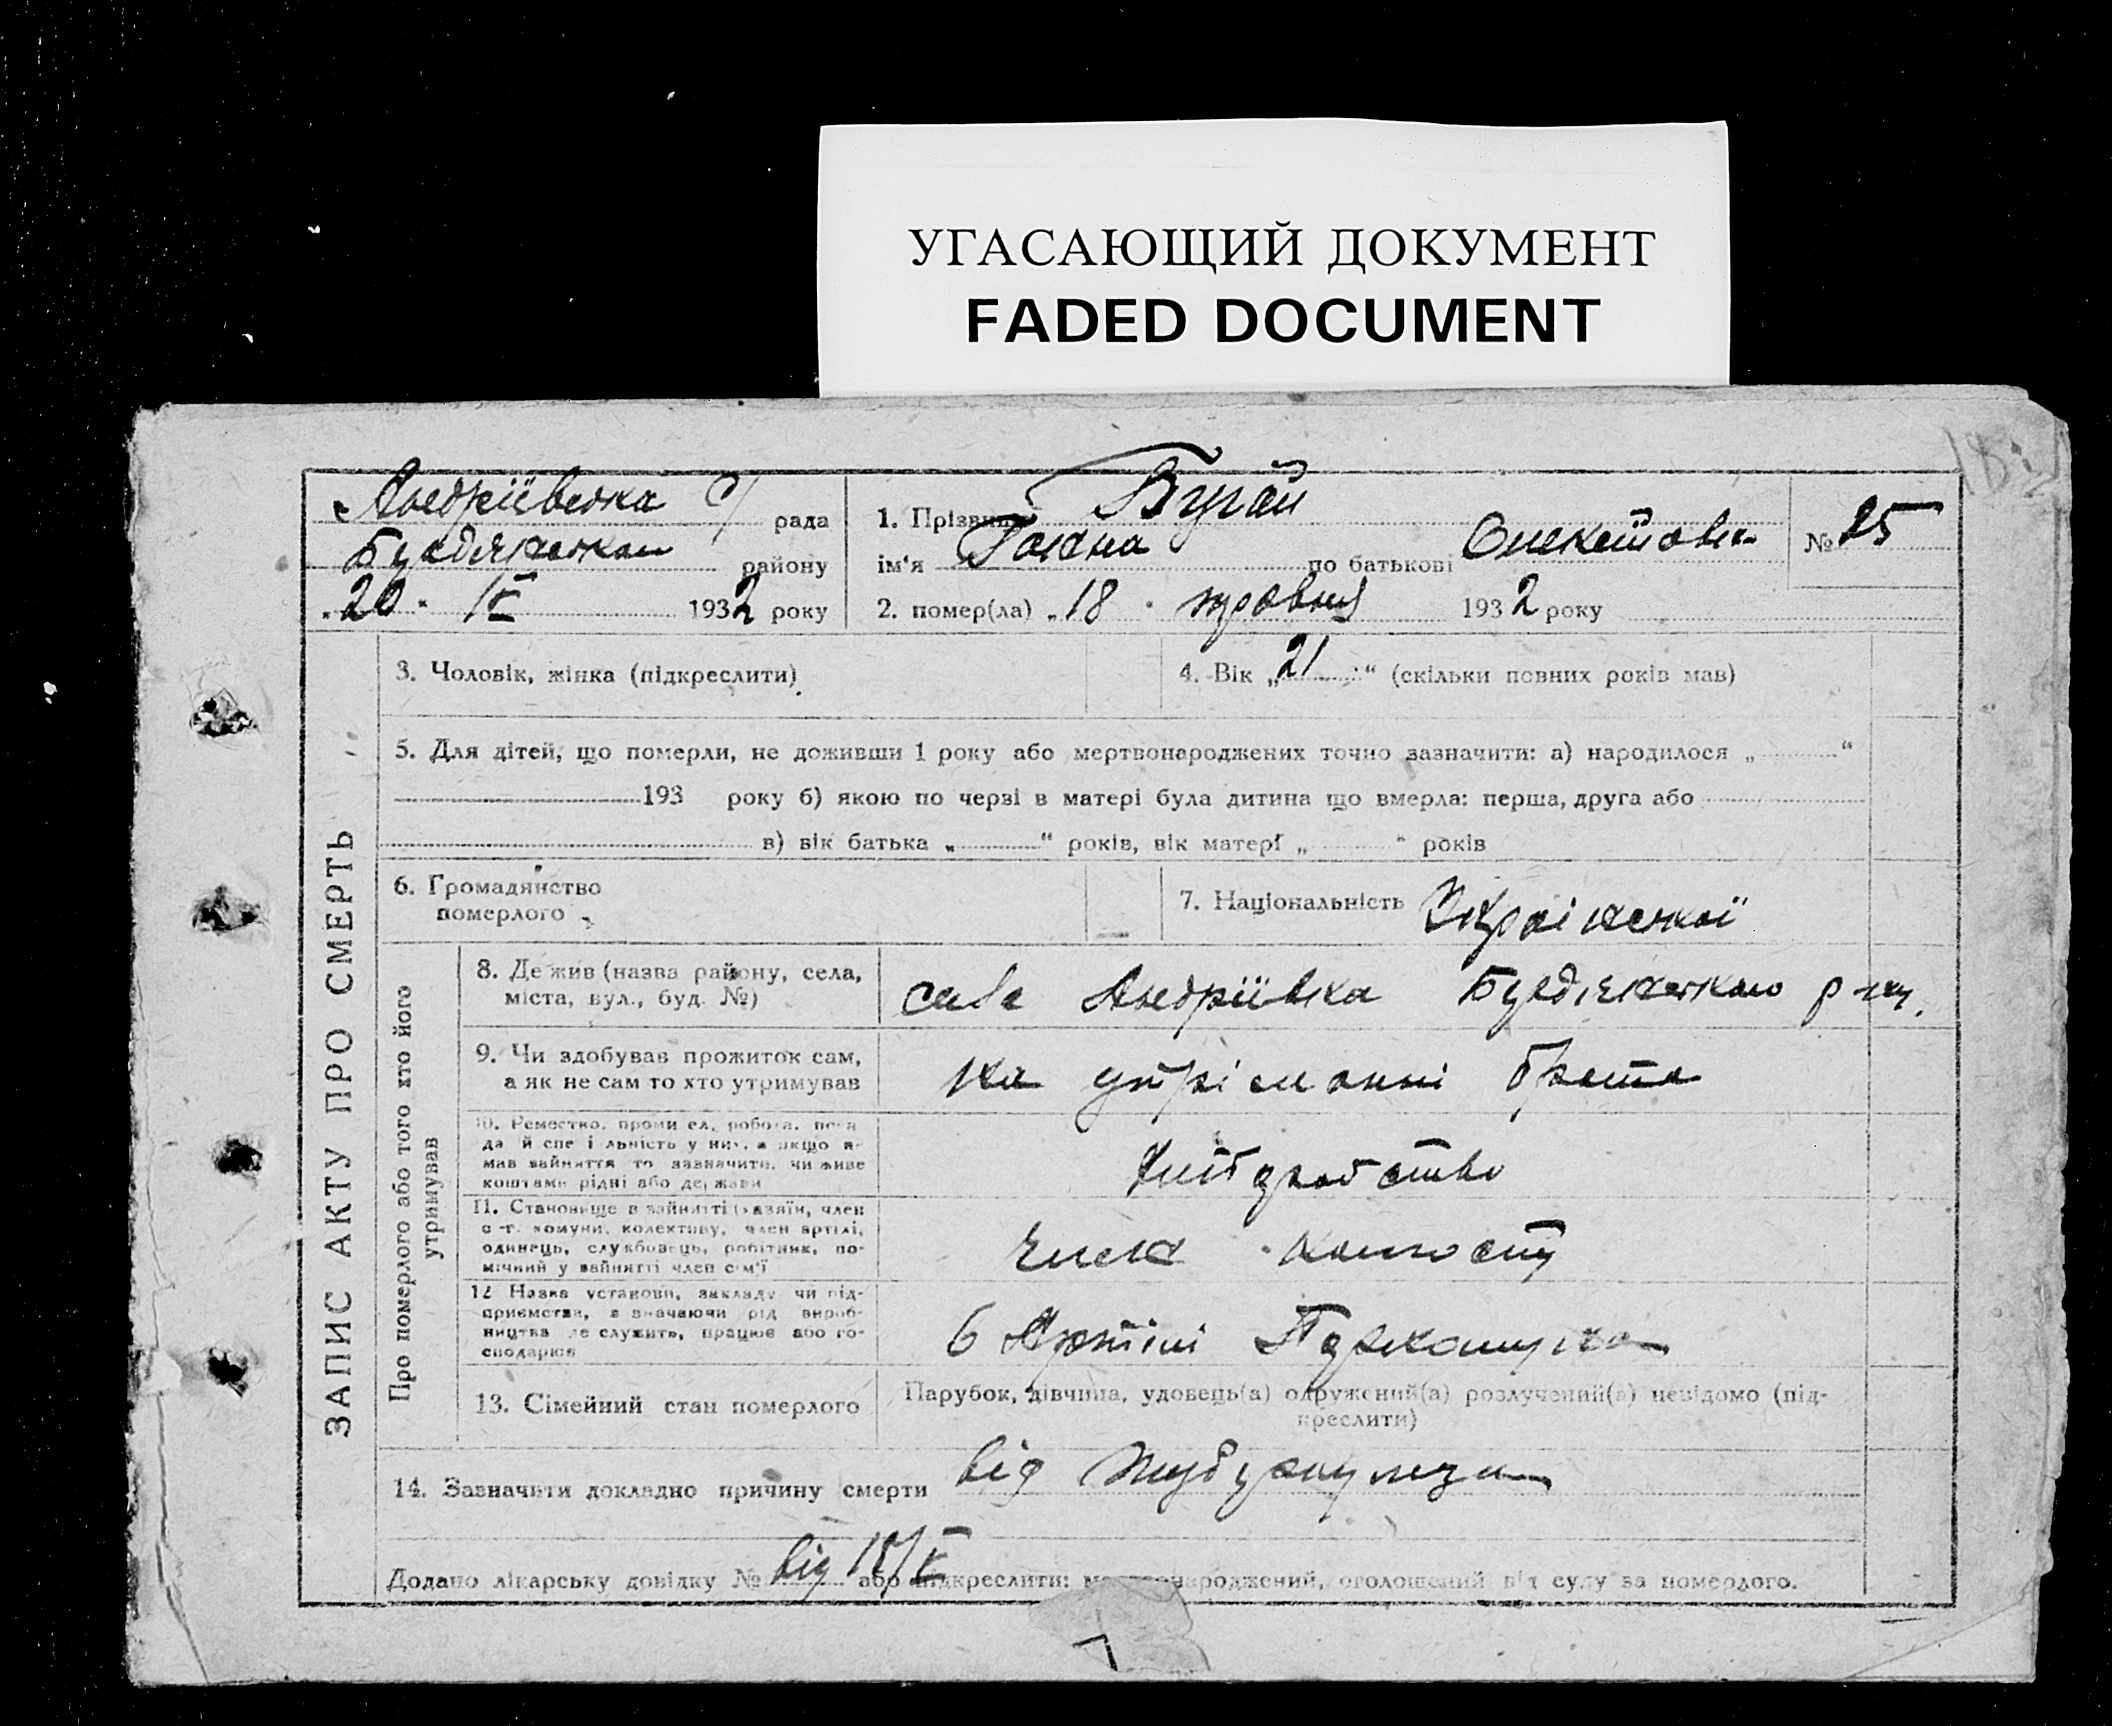 УГАСАЮЩИЙ ДОКУМЕНТ
FADED DOCUMENT
Андріївська С/ рада
Бердянськ району
„20“ V 1932 року
1. Прізвище Бугай
ім'я Ганна по батькові
№ 25
2. помер(ла) „18“ травня 1932 року
ЗАПИС АКТУ ПРО СМЕРТЬ
3. Чоловік, жінка (підкреслити)
4. Вік „21“ (скільки повних років мав)
5. Для дітей, що померли, не доживши 1 року або мертвонароджених точно зазначити: а) народилося „ “
193 року б) якою по черзі в матері була дитина що вмерла: перша, друга або
в) вік батька „ “ років, вік матері „ “ років
6. Громадянство
померлого
7. Національність Українскої
Про померлого або того хто його
утримував
8. Де жив (назва району, села,
міста, вул., буд. №)
село Андріївка Бердянського р-ну.
9. Чи здобував прожиток сам,
а як не сам то хто утримував
на утріманні брата
10. Ремество, промисел, робота, поса
да й спеціальність у них, а якщо не
мав зайняття то зазначити, чи живе
коштами рідні або держави
Хліборобство
11. Становище в зайнятті (хазяїн, член
с-г. комуни, колективу, член артілі,
одинець, службовець, робітник, по-
мічний у зайнятті член сім'ї
Член
12. Назва установи, закладу чи під-
приємства, зазначаючи рід вироб-
ництва де служить, працює або го-
сподарює
в Артілі
13. Сімейний стан померлого
Парубок, дівчина, удовець(а) одружений(а) розлучений(а) невідомо (під-
креслити)
14. Зазначити докладно причину смерти від туберкульоза
Додано лікарську довідку № від 18/V або підкреслити: мертвонароджений, оголошений від суду за померлого.